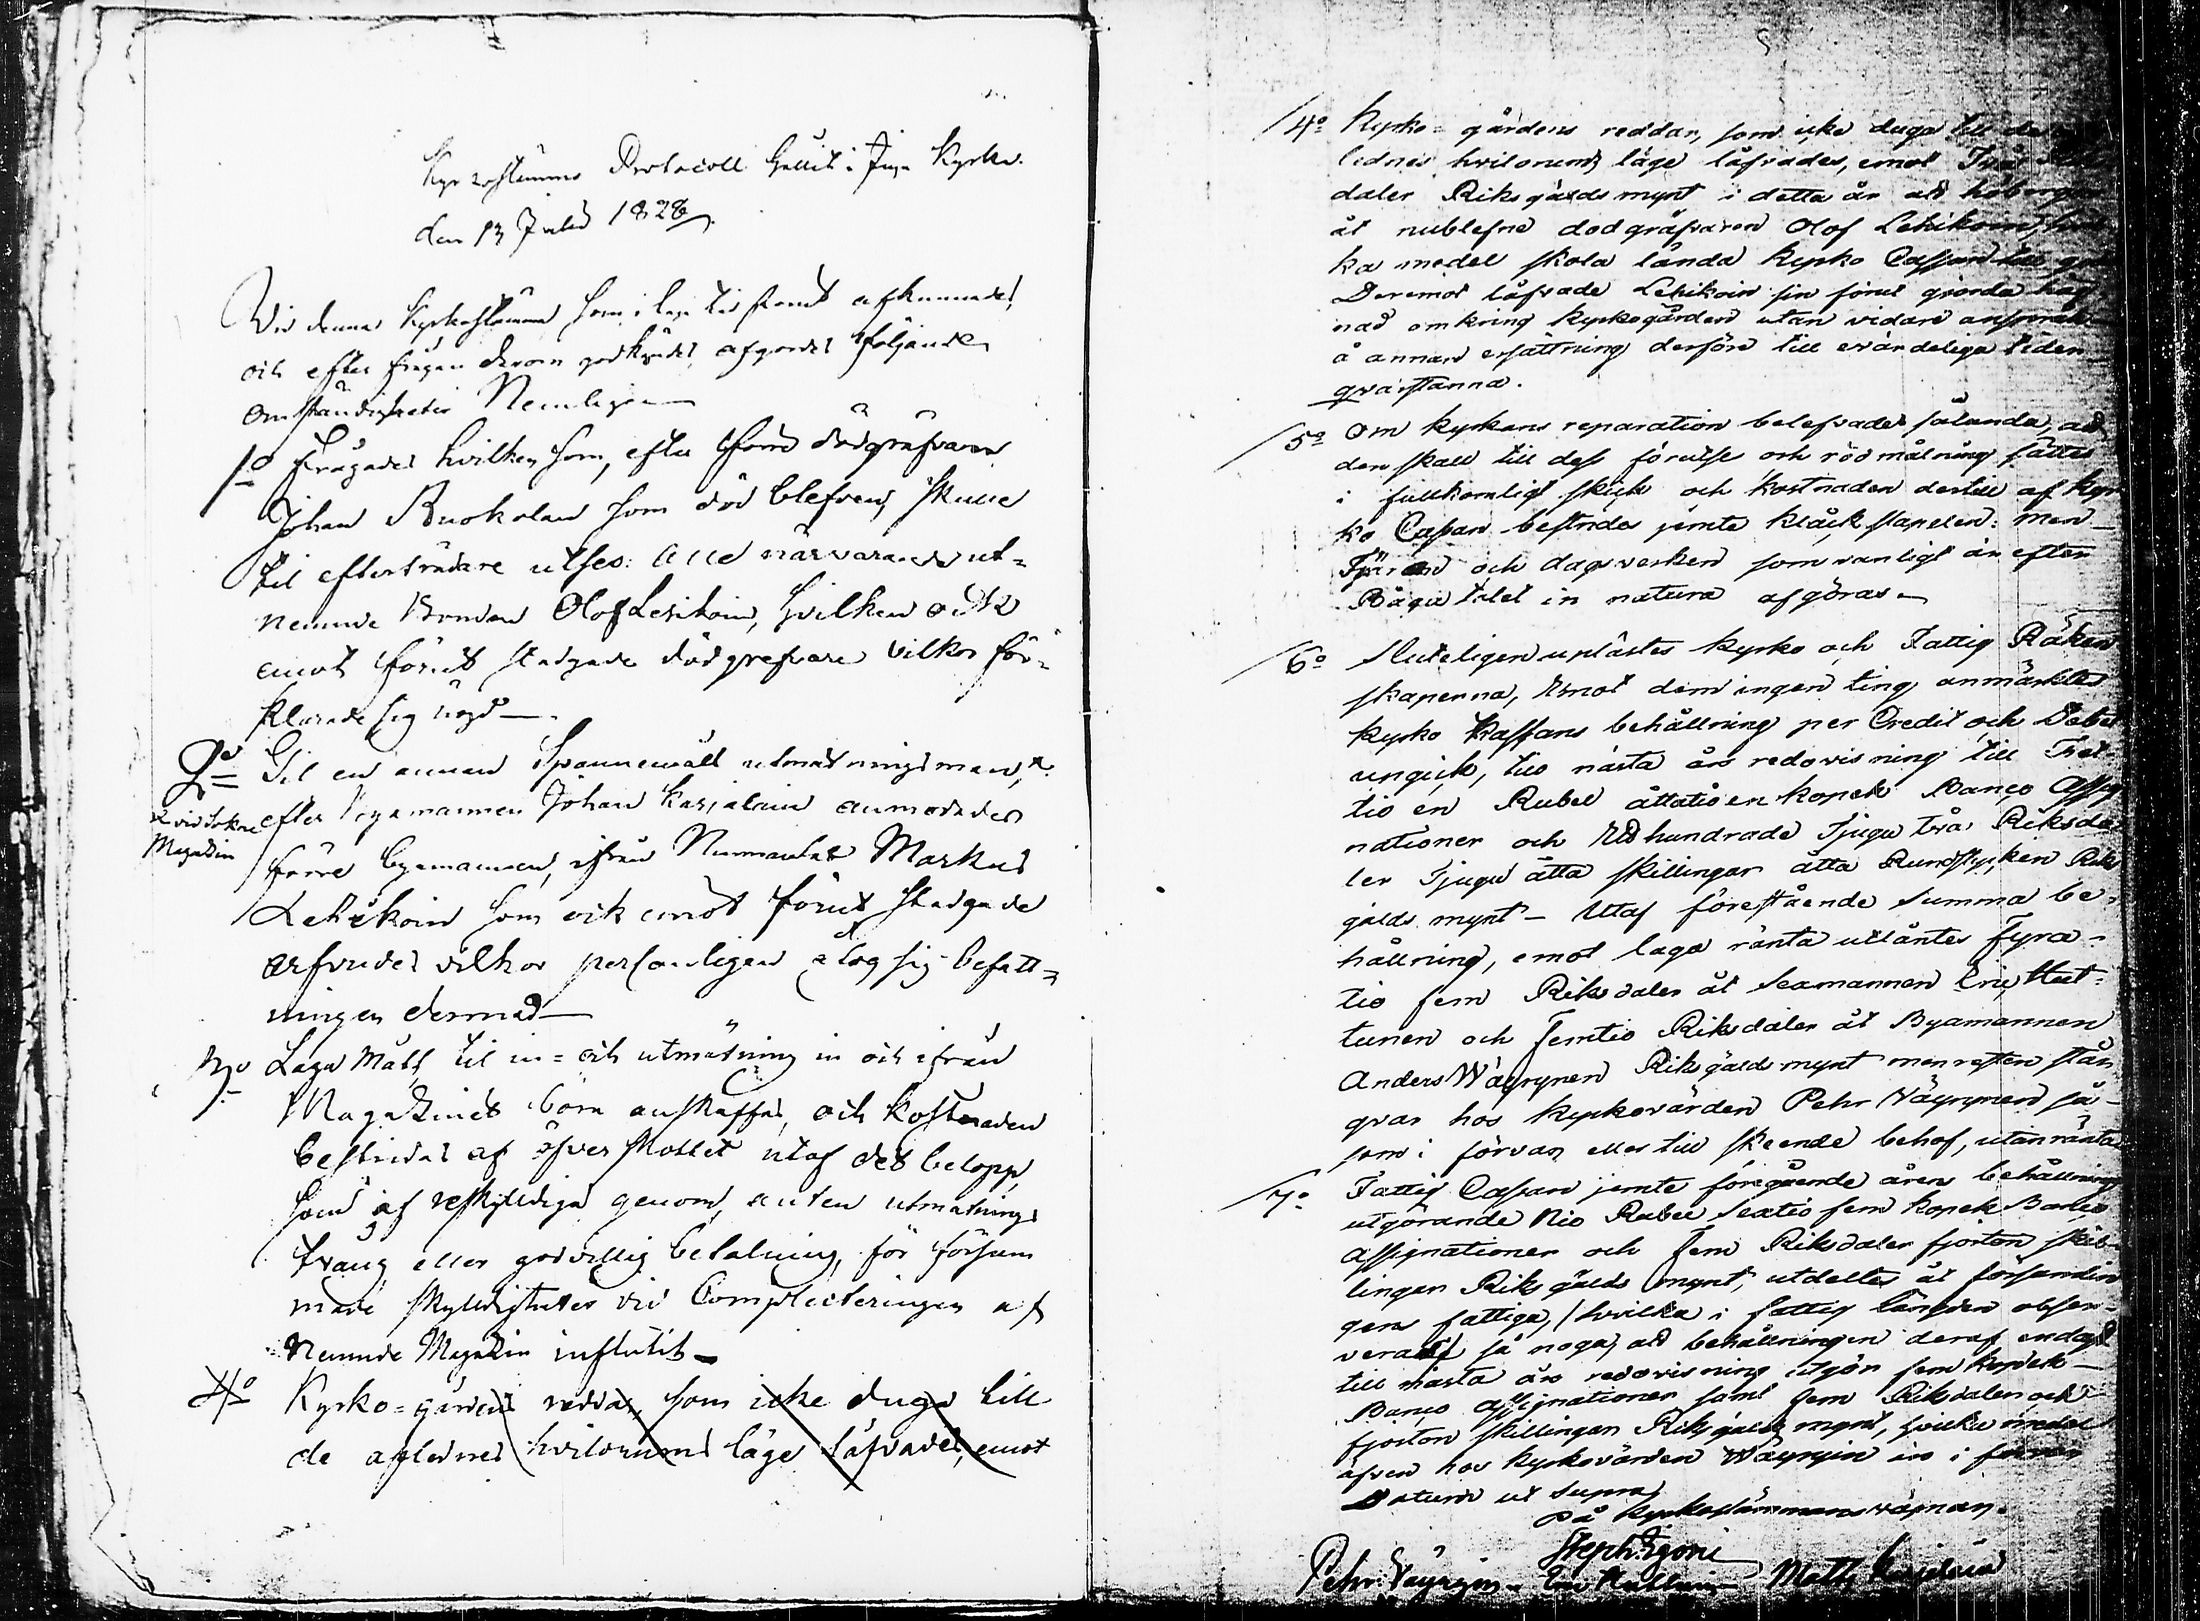 Kyrkostämmo Protocoll hållit i Kyrka
den 13 Julii 1828
Wid denna Kyrkostämma som i laga tid sfkunnades
och efter frågan derom godkändes, afgordes följande
omständigheter Nemligen
1o Frågades hvilken som, efter förre dödgräfvaren
Johan Ruokolain som död blefven, skulle
til efterträdare utses: Alle närvarande ut=
nemnde Bonden Olof Lehikoin, hvilken ock
emot förut stadgade dödgrefvare vilkor för=
klarade sig nögd
2o Til en annan Spannemåls utmätningsman, x
x vid Sokne Magazin
efter Byamannen Johan Karjalain anmodades
förre byamannen, ifrån Nurmandat Markus
Lehikoin som ock emot förut stadgade
arfvodes vilkor personligen åtog sig befatt=
ningen dermed
3o Laga Mått til in= och utmätning in och ifrån
Magazinet böra anskaffas, och kostnaden
bestridas af öfverskottet utaf det belopp,
som af reskyldiga genom, anten utmätnings
tvang eller godvillig betalning, för försum
made skyldigheter vid Completteringen af
Nemnde Magazin influtit
4o Kyrko=gårdens reddar, som icke duga till
de aflednes hvilorums läge låfvades, emot
4o Kyrko=gårdens reddar, som icke duga till de
lednes hvilorums läge låfvades, emot Två
daler Riksgälds mynt i detta år att
åt nyblefne dödgräfvaren Olof Lehikoin,
ka medel skola lända kyrko Cassan till
Deremot låfvade Lehikoin sin förut gjorda häg
nad omkring kyrkogården utan vidare anspråk
å annan ersättning derföre till evärdeliga tider
qvarstanna.
5o Om kyrkans reparation belefvades sålunda, att
den skall till dess förutse och rödmålning sättas
i fullkomligt skick och kostnaden dertill af kyr
ko Cassan bestridas jemte klåckstapelen: men
Tjäran och dagsverken som vanligt är efter
Bågu talet in natura afgöras
6o Sluteligen uplästes kyrko och Fattig Räken
skaperna, Emot dem ingen ting anmärktes
kyrko Kassans behållning per Credit och Debet
ungick, till nästa års redovisning till Tret
tio en Rubel åttatio en kopek Banco Assig
nationer och Ett hundrade Tjugu två Riksda
ler Tjugu åtta skillingar åtta Rundstycken Riks
gälds mynt – Utaf förestående summa be=
hållning, emot laga ränta utlåntes Fyra=
tio fem Riksdaler åt Sexmannen Eric Hut=
tunen och Femtio Riksdaler åt Byamannen
Anders Wäyrynen Riksgälds mynt men resten står
qvar hos kyrkovärden Pehr Väyrynen så
som i förvar eller till skeende behof, utan ränta
7o Fattig Cassan jemte föregående årens behållning
utgörande Nio Rubel Sextio fem kopek Banco
Assignationer och Fem Riksdaler fjorton skil
lingar Riksgälds mynt, utdeltes åt församlin
gens fattiga, (hvilka i fattig längden obser=
verats så noga, att behållningen deraf endast
till nästa års redovisning utgör fem kopek
Banco Assignationer samt Fem Riksdaler och
fjorton skillingar Riksgälds mynt, hvilka medel
äfven hos kyrkovärden Wäyrynin är i förvar
Datum ut supra
På kyrkostämmans vägnar.
Steph:
Pehr Väyryin Math Karjalain